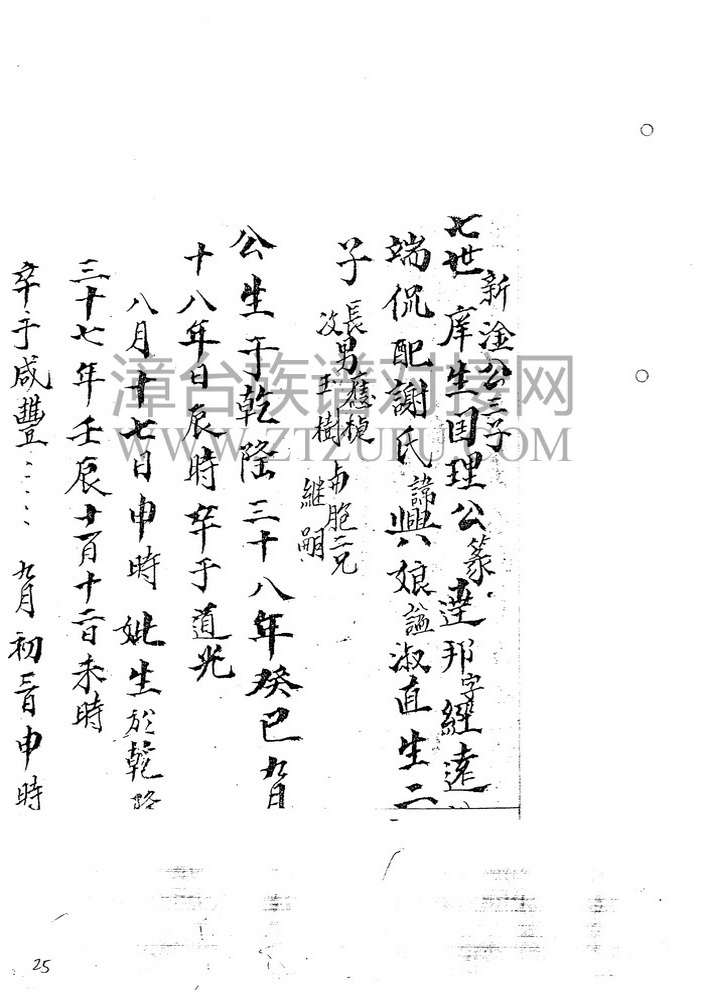 新淦公三子
七世 庠生国理公篆達邦字經遠
端侃配謝氏諱興娘諡淑直生二
子 長男應楨
次王樹
由胞二兄
継嗣
公生于乾隆三十八年癸巳九月
十八年日辰時卒于道光
八月十七日申時妣生於乾隆
三十七年壬辰十一月十二日未時
卒于咸豐:::: 九月初三日申時
漳台族谱对接网
WWW.ZTZUPU.COM
25